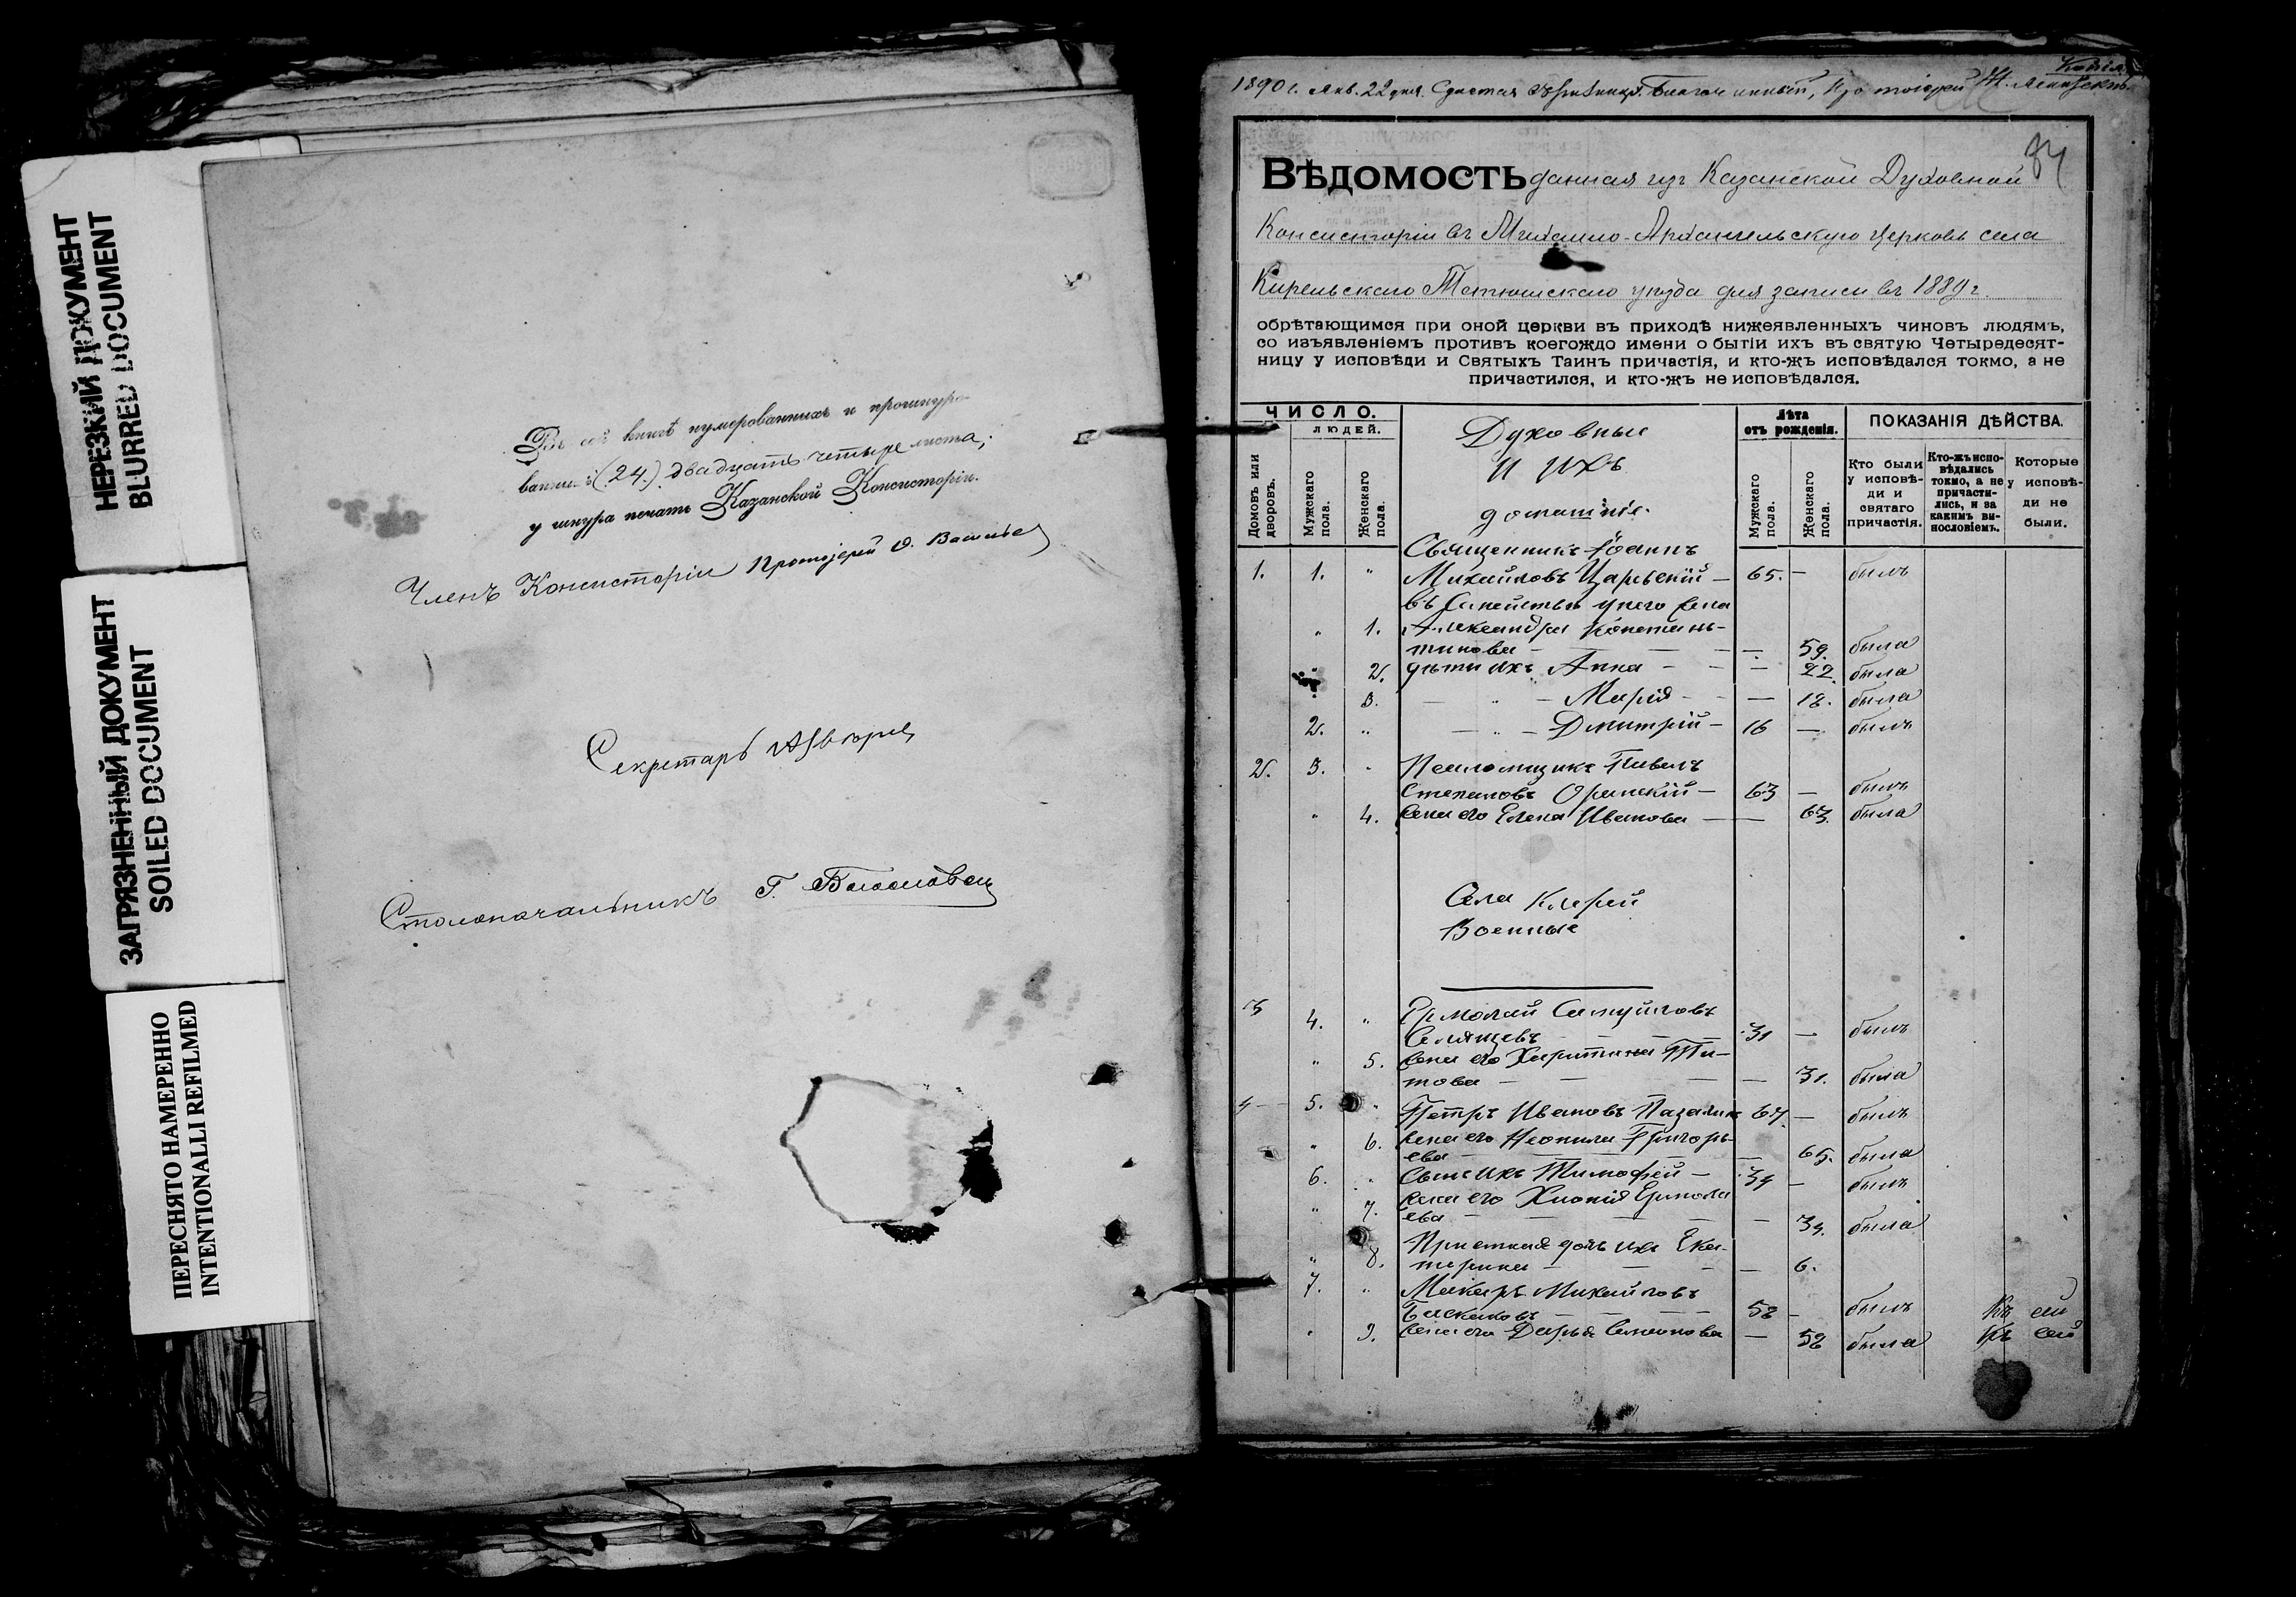 НЕРЕЗКИЙ ДОКУМЕНТ
BLURRED DOCUMENT
ЗАГРЯЗНЕННЫЙ ДОКУМЕНТ
SOILED DOCUMENT
ПЕРЕСНЯТО НАМЕРЕННО
INTENTIONALLI REFILMED
Въ сей книгѣ нумерованныхъ и прошнуро-
ванныхъ (24.) двадцать четыре листа,
у шнура печать Казанской Консисторіи.
Членъ Консисторіи Протоіерей
Секретарь
Столоначальникъ Г. Богословскій
Копія
1890 г. Янв. 22 дня. Благочинный, Протоіерей
84
ВѢДОМОСТЬ данная изъ Казанской Духовной
Консисторіи въ Михаило-Архангельскую церковь села
Кирельскаго Тетюшскаго уѣзда для записи въ 1889 г.
обрѣтающимся при оной церкви въ приходѣ нижеявленныхъ чиновъ людямъ,
со изъявленіемъ противъ коегождо имени о бытіи ихъ въ святую Четыредесят-
ницу у исповѣди и Святыхъ Таинъ причастія, и кто-жъ исповѣдался токмо, а не
причастился, и кто-жъ не исповѣдался.
ЧИСЛО.
ЛЮДЕЙ.
Домовъ или дворовъ.
Мужскаго пола.
Женскаго пола.
Духовные
и ихъ
домашніе.
Лѣта
отъ рожденія.
Мужскаго пола.
Женскаго пола.
ПОКАЗАНІЯ ДѢЙСТВА.
Кто были у исповѣ-ди и святаго причастія.
Кто-жъ испо-вѣдались токмо, а не причасти-лись, и за какимъ ви-нословіемъ.
Которые у исповѣ-ди не были.
Священникъ Іоаннъ
1. 1. " Михайловъ Царевскій — 65. — былъ
въ семействѣ у него жена
" 1. Александра Констан-
тинова — — 59. была
" 2. дѣти ихъ Анна — — 22. была
" 3. — " — Марія — — 18. была
2. " — " — Дмитрій — 16 — былъ
2. 3. " Псаломщикъ Павелъ
Степановъ Оранскій — 63 — былъ
" 4. жена его Елена Иванова — — 63. была
Села Кирели
Военные
3 4. " Ермолай Самуиловъ
31 — былъ
" 5. жена его Харитина Ти-
това — — 31. была
4 — 5. " Петръ Ивановъ 67. — былъ
" 6. жена его Неонила Григорь-
ева — — 65. была
6. " Сынъ ихъ Тимофей — 34 — былъ
" 7. жена его Хіонія Ермола
ева — — 34. была
" 8. Пріемная дочь ихъ Ека-
терина — — 6.
7. " Макаръ Михайловъ
Баскаковъ — 58 — былъ
" 9. жена его Дарья Семенова — 58 была